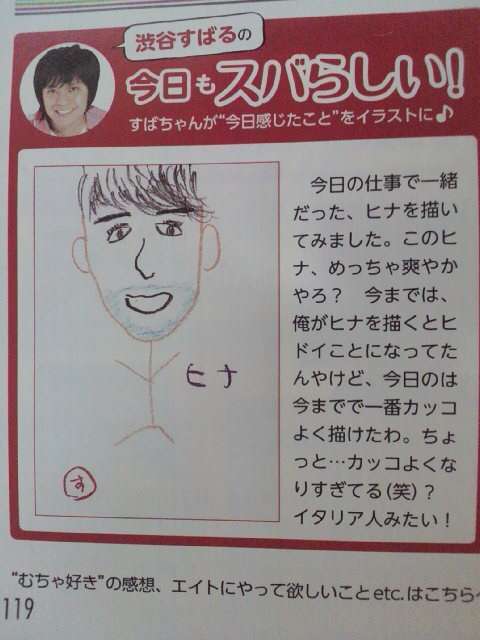 渋谷すばるの
今日もスバらしい!
すばちゃんが“今日感じたこと”をイラストに♪
今日の仕事で一緒
だった、ヒナを描い
てみました。このヒ
ナ、めっちゃ爽やか
やろ? 今までは、
俺がヒナを描くとヒ
ドイことになってた
んやけど、今日のは
今までで一番カッコ
よく描けたわ。ちょ
っと…カッコよくな
りすぎてる(笑)?
イタリア人みたい!
ヒナ
す
“むちゃ好き”の感想、エイトにやって欲しいことetc.はこちらへ
119